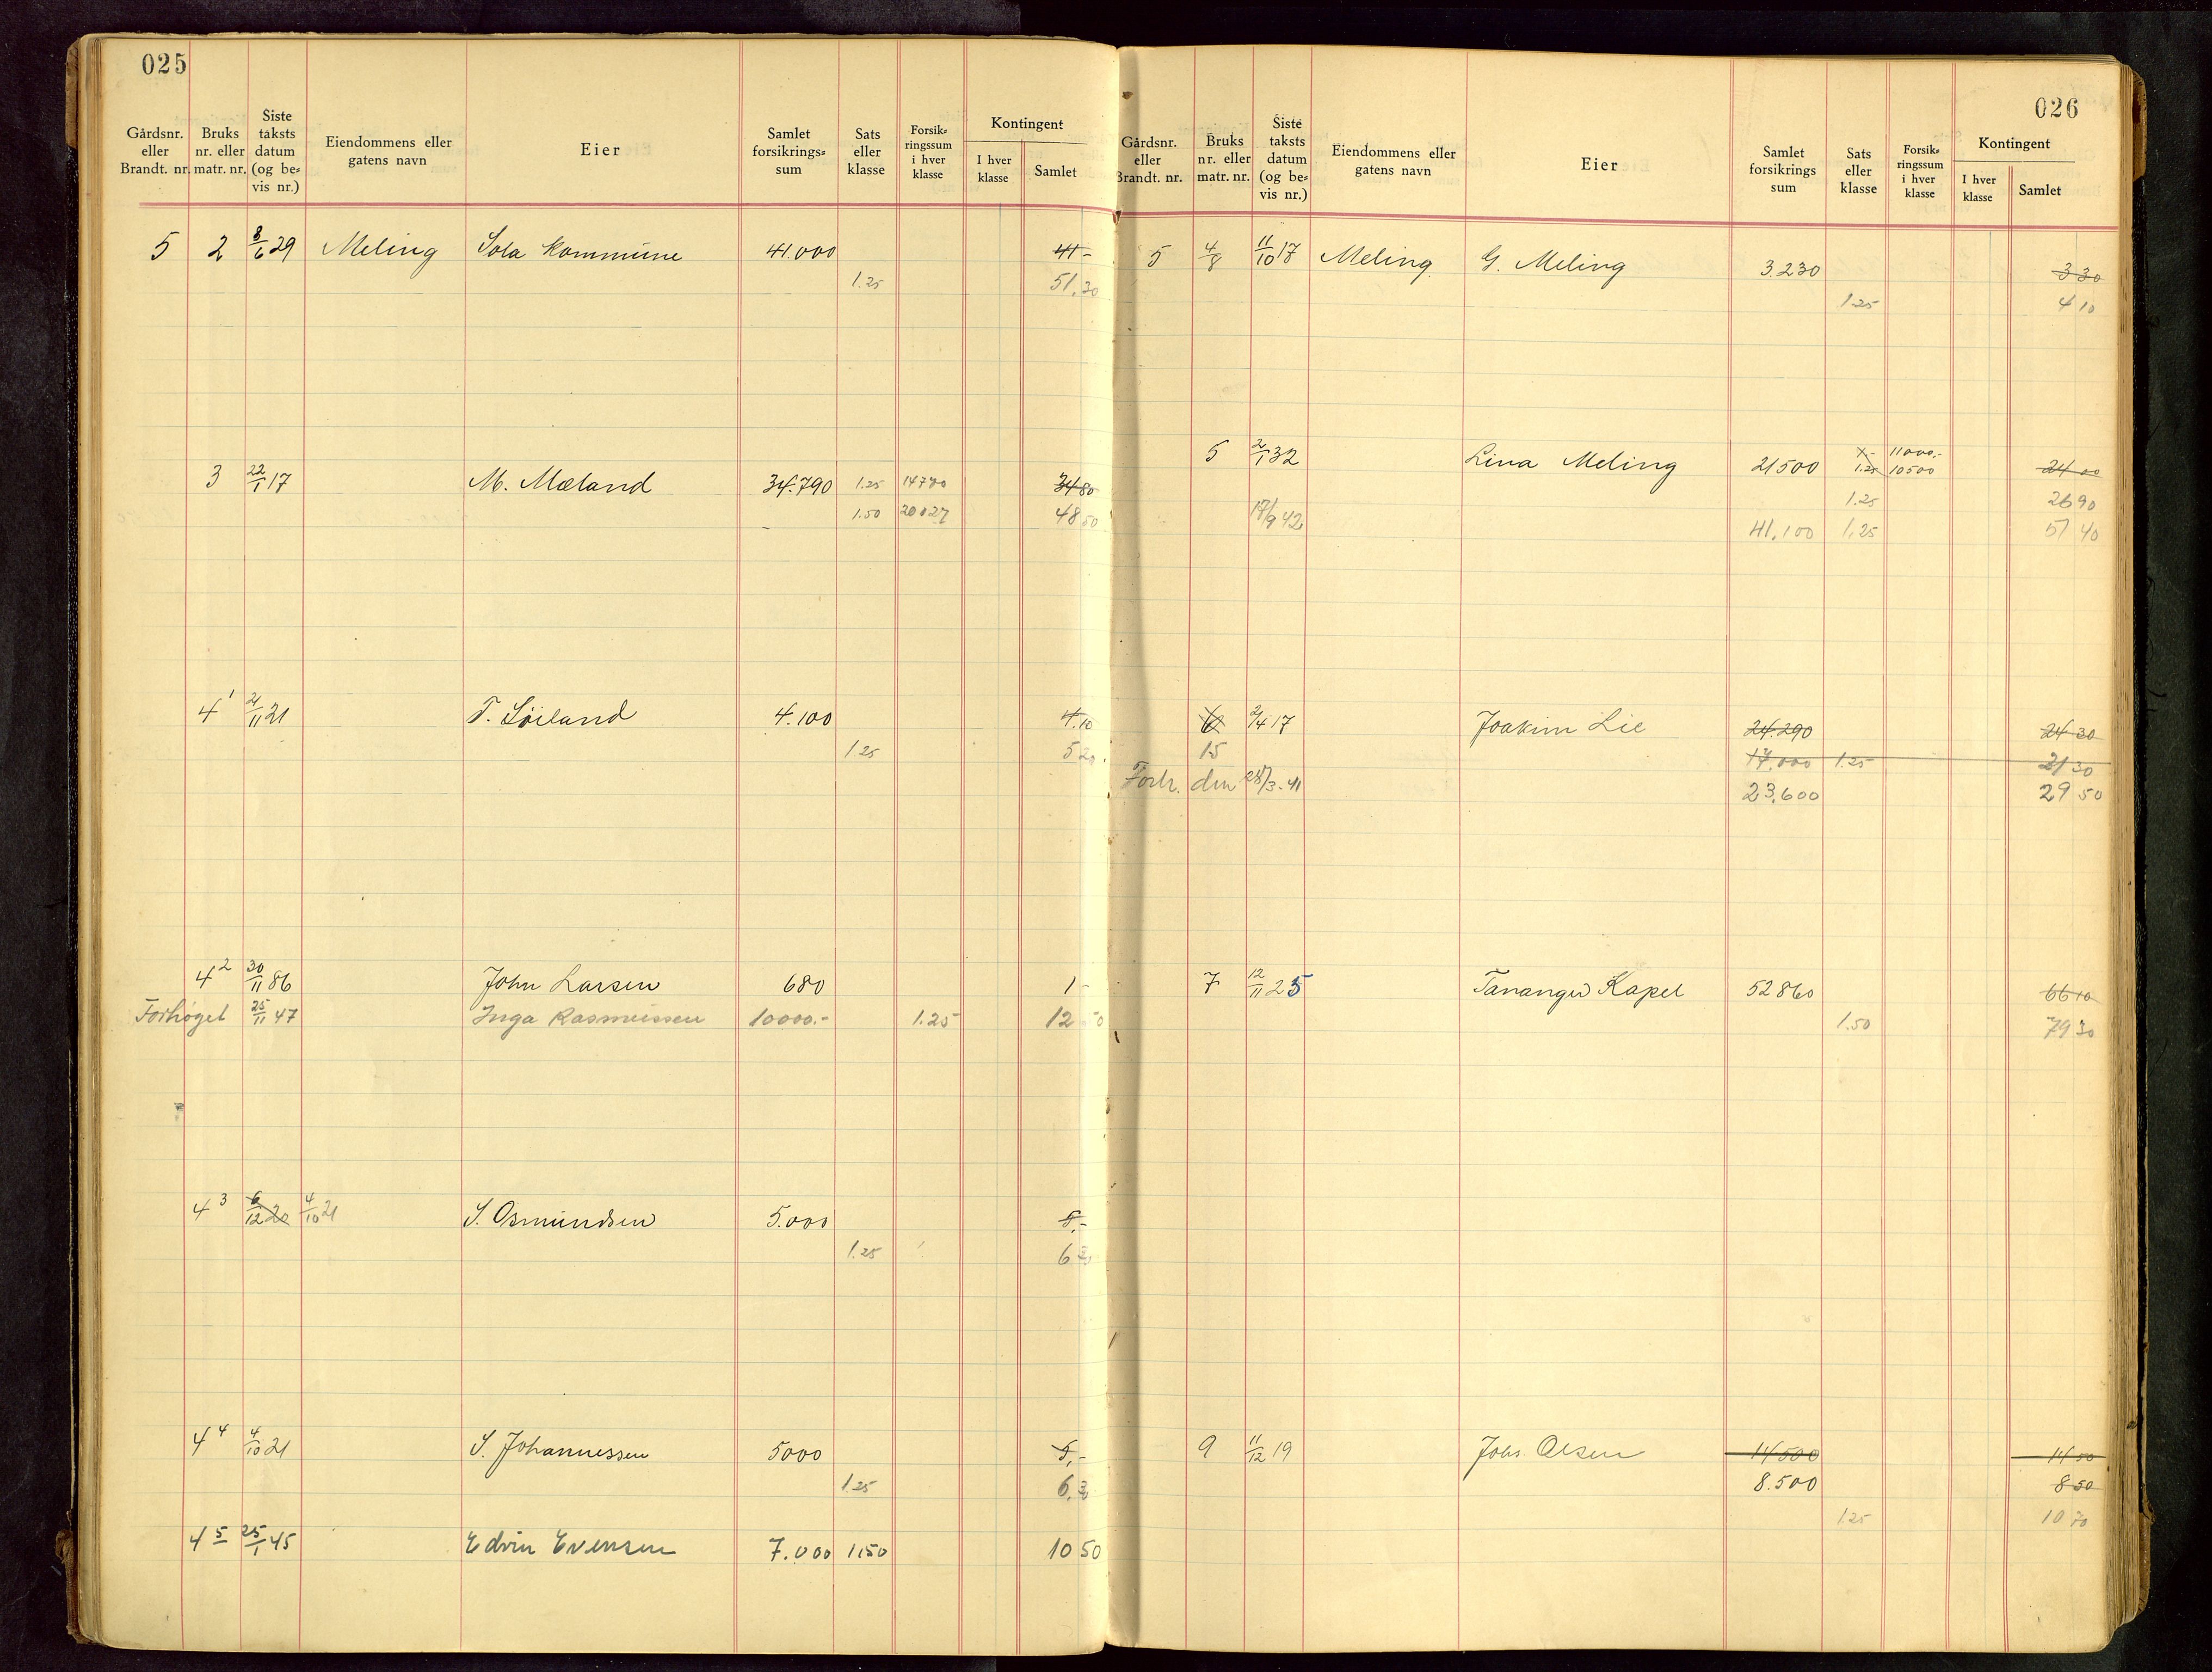 025
Gårdsnr. eller Brandt. nr. Bruks nr. eller matr. nr. Siste taksts datum (og be= vis nr.) Eiendommens eller gatens navn Eier Samlet forsikrings= sum Sats eller klasse Forsik= ringssum i hver klasse Kontingent I hver klasse Samlet
5 2 8/6 29 Meling Sola kommune 41.000 41-
1.25 51.30
3 22/1 17 M. Mæland 34.790 1.25 3480
1.50 48 50
4 1 21/11 21 T. Söiland 4.100 4.10
1.25 5 20
4 2 30/11 86 John Larsen 680 1-
Forhøget 25/11 47 Inga Rasmussen 10000.- 1.25 12 50
4 3 6/12 20 4/10 21 S. Osmundsen 5.000 5,-
1.25 6 30
4 4 4/10 21 S. Johannessen 5000 5,-
1.25 6.30
4 5 25/1 45 Edvin Evensen 7.000 1.50 10 50
026
Gårdsnr. eller Brandt. nr. Bruks nr. eller matr. nr. Siste taksts datum (og be= vis nr.) Eiendommens eller gatens navn Eier Samlet forsikrings sum Sats eller klasse Forsik= ringssum i hver klasse Kontingent I hver klasse Samlet
5 4/8 11/10 17 Meling G. Meling 3.230 3 30
1.25 4 10
5 2/1 32 Lina Meling 21500 1.- 11000.- 24 00
1.25 10500
1.25 26 90
17/9 42 41.100 1.25 51 40
6 2/4 17 Joakim Lie 24.290 24 30
15 17.000 1.25 21 30
Forh. den 28/3-41 23.600 29 50
7 12/11 25 Tananger Kapel 52860 66 10
1.50 79 30
9 11/12 19 Johs. Olsen 14500 14 50
8.500 8 50
1.25 10 70